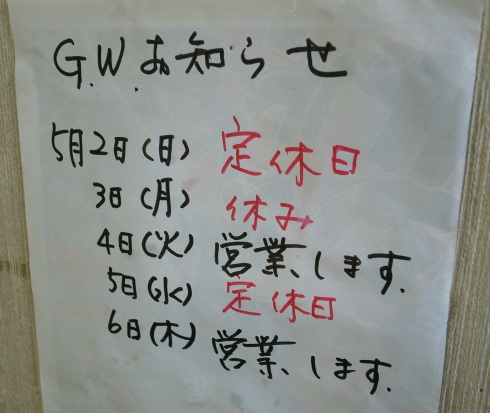 G.W.お知らせ
5月2日(日) 定休日
3日(月) 休み
4日(火) 営業します.
5日(水) 定休日
6日(木) 営業します.